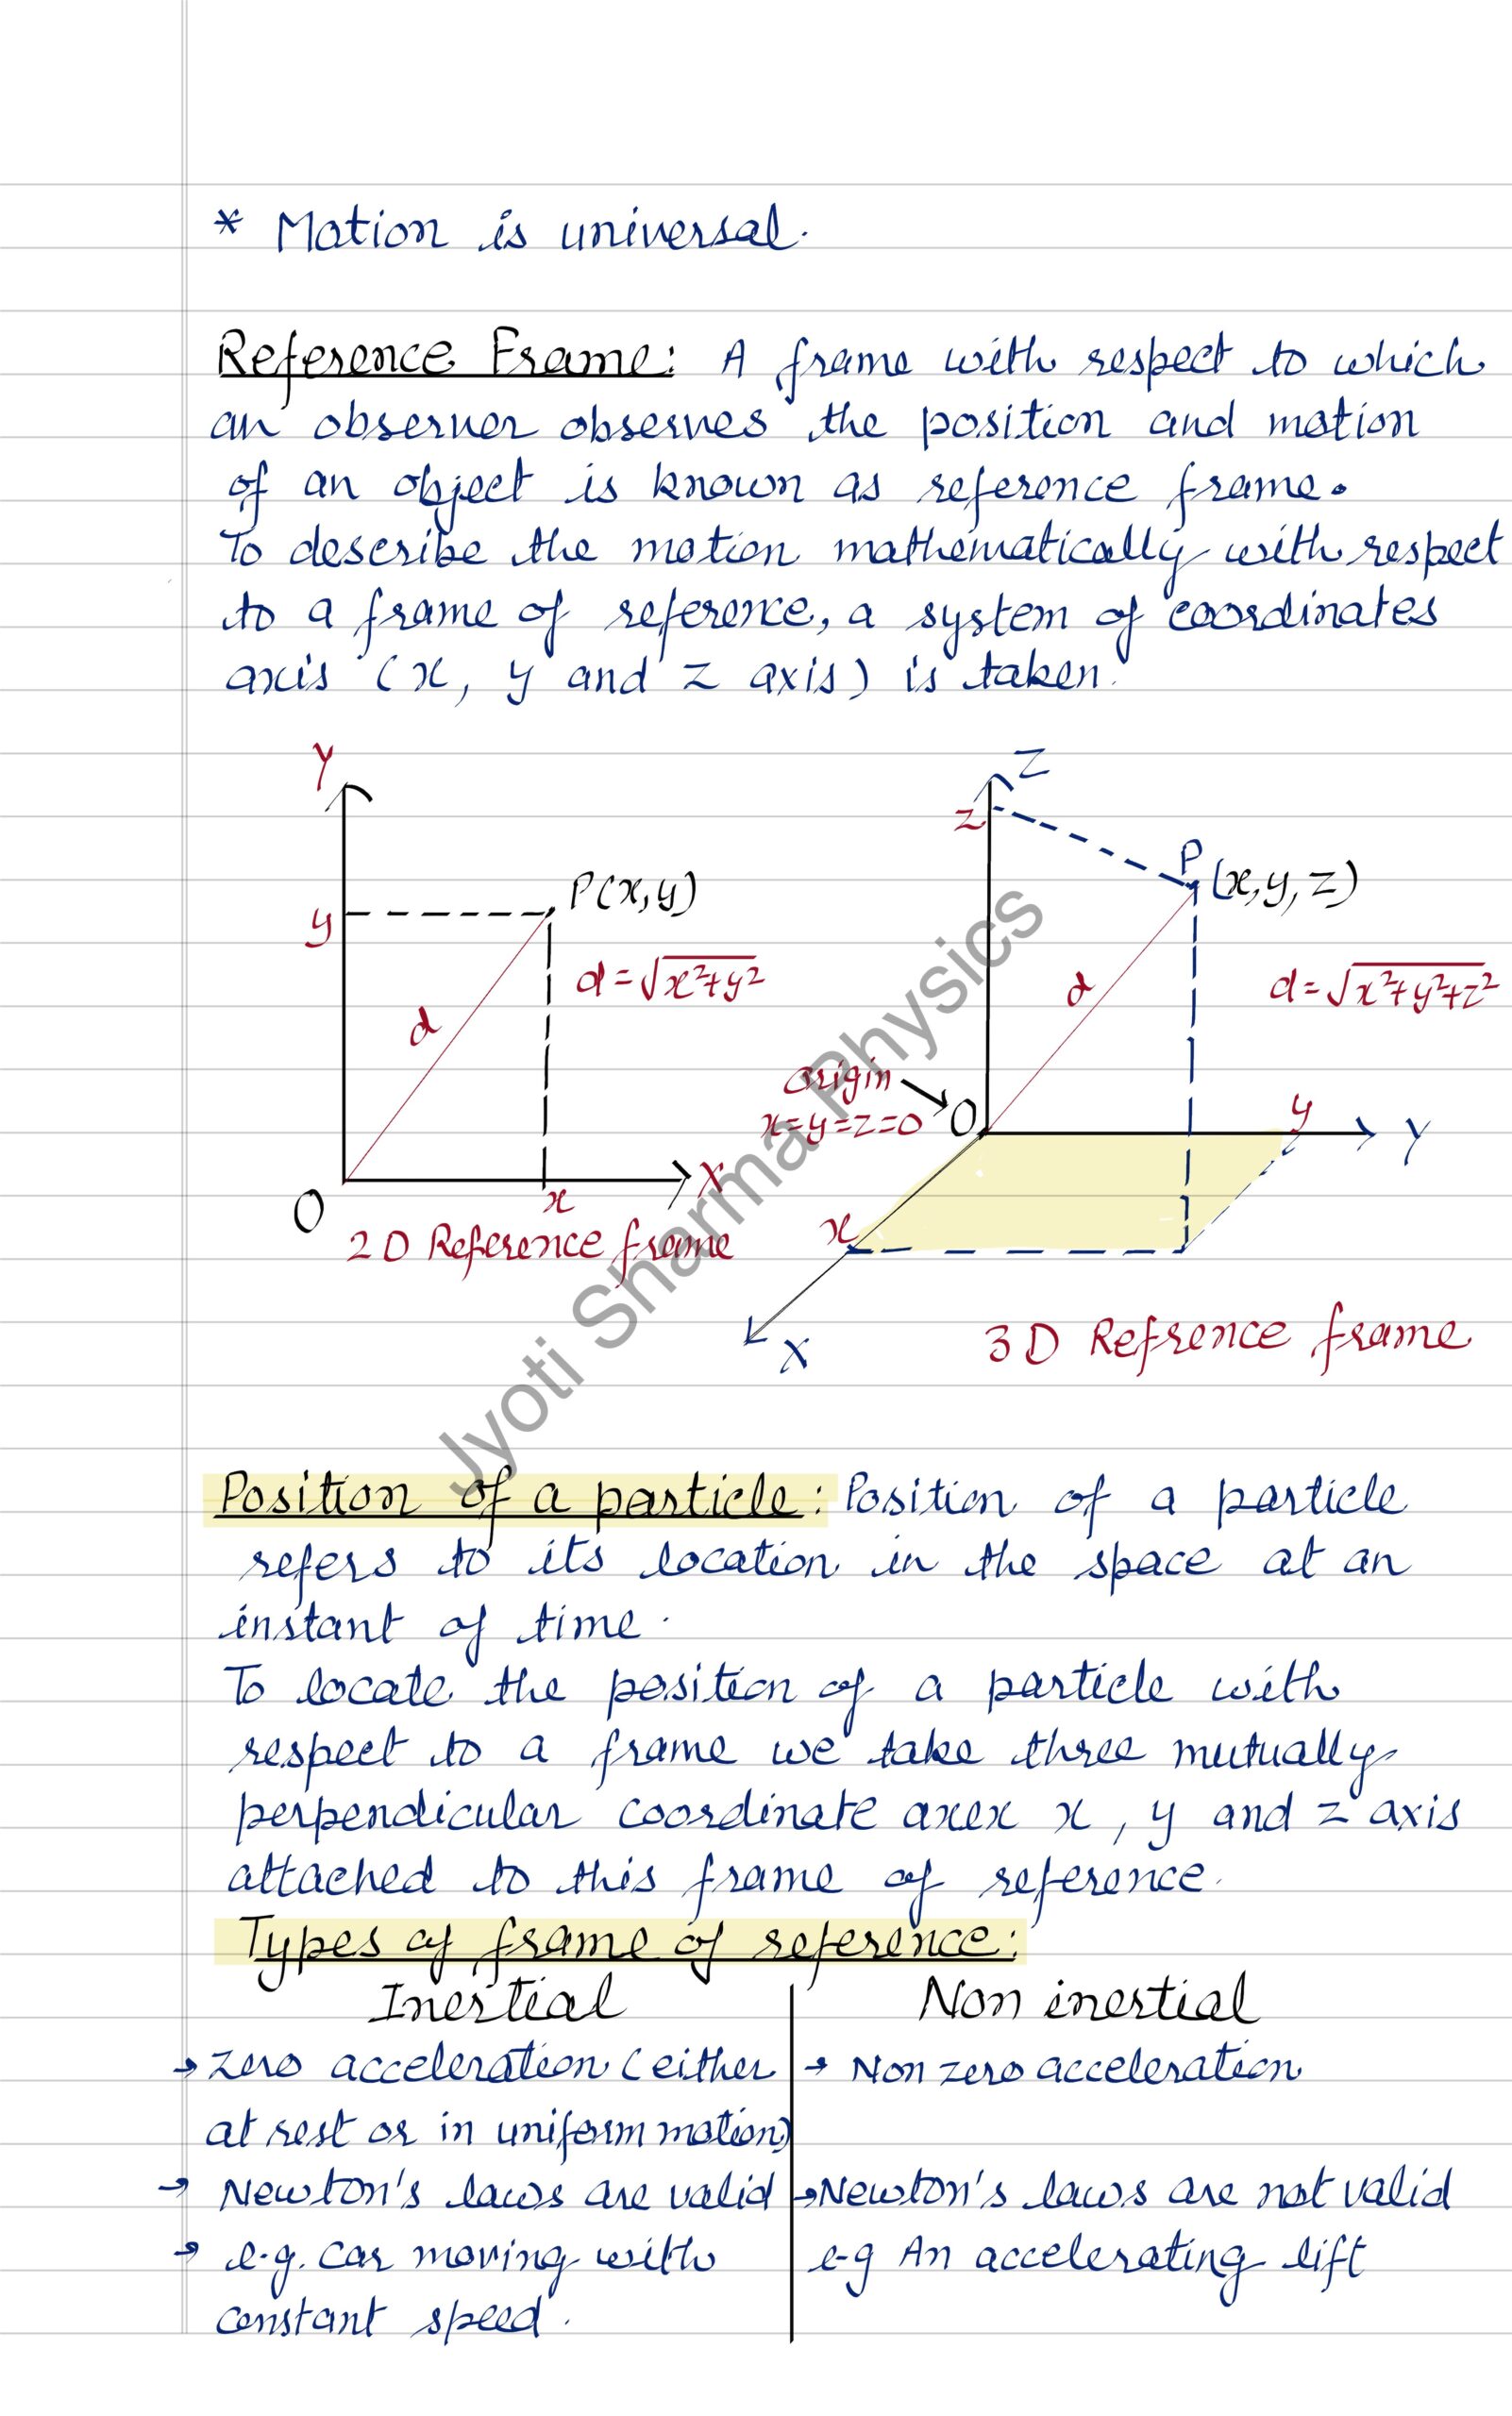 * Motion is universal.
Reference Frame: A frame with respect to which
an observer observes the position and motion
of an object is known as reference frame.
To describe the motion mathematically with respect
to a frame of reference, a system of coordinates
axis (x, y and z axis) is taken.
Y
y
P(x,y)
d = √x²+y²
d
O
x
X
2D Reference frame
Z
z
P (x,y,z)
d
d = √x²+y²+z²
Origin
x=y=z=0
O
y
Y
x
X
3D Refrence frame
Jyoti Sharma Physics
Position of a particle: Position of a particle
refers to its location in the space at an
instant of time.
To locate the position of a particle with
respect to a frame we take three mutually
perpendicular coordinate axex x, y and z axis
attached to this frame of reference.
Types of frame of reference:
Inertial
→ zero acceleration (either
at rest or in uniform motion)
→ Newton's laws are valid
→ e.g. car moving with
constant speed.
Non inertial
→ Non zero acceleration
→ Newton's laws are not valid
e-g An accelerating lift